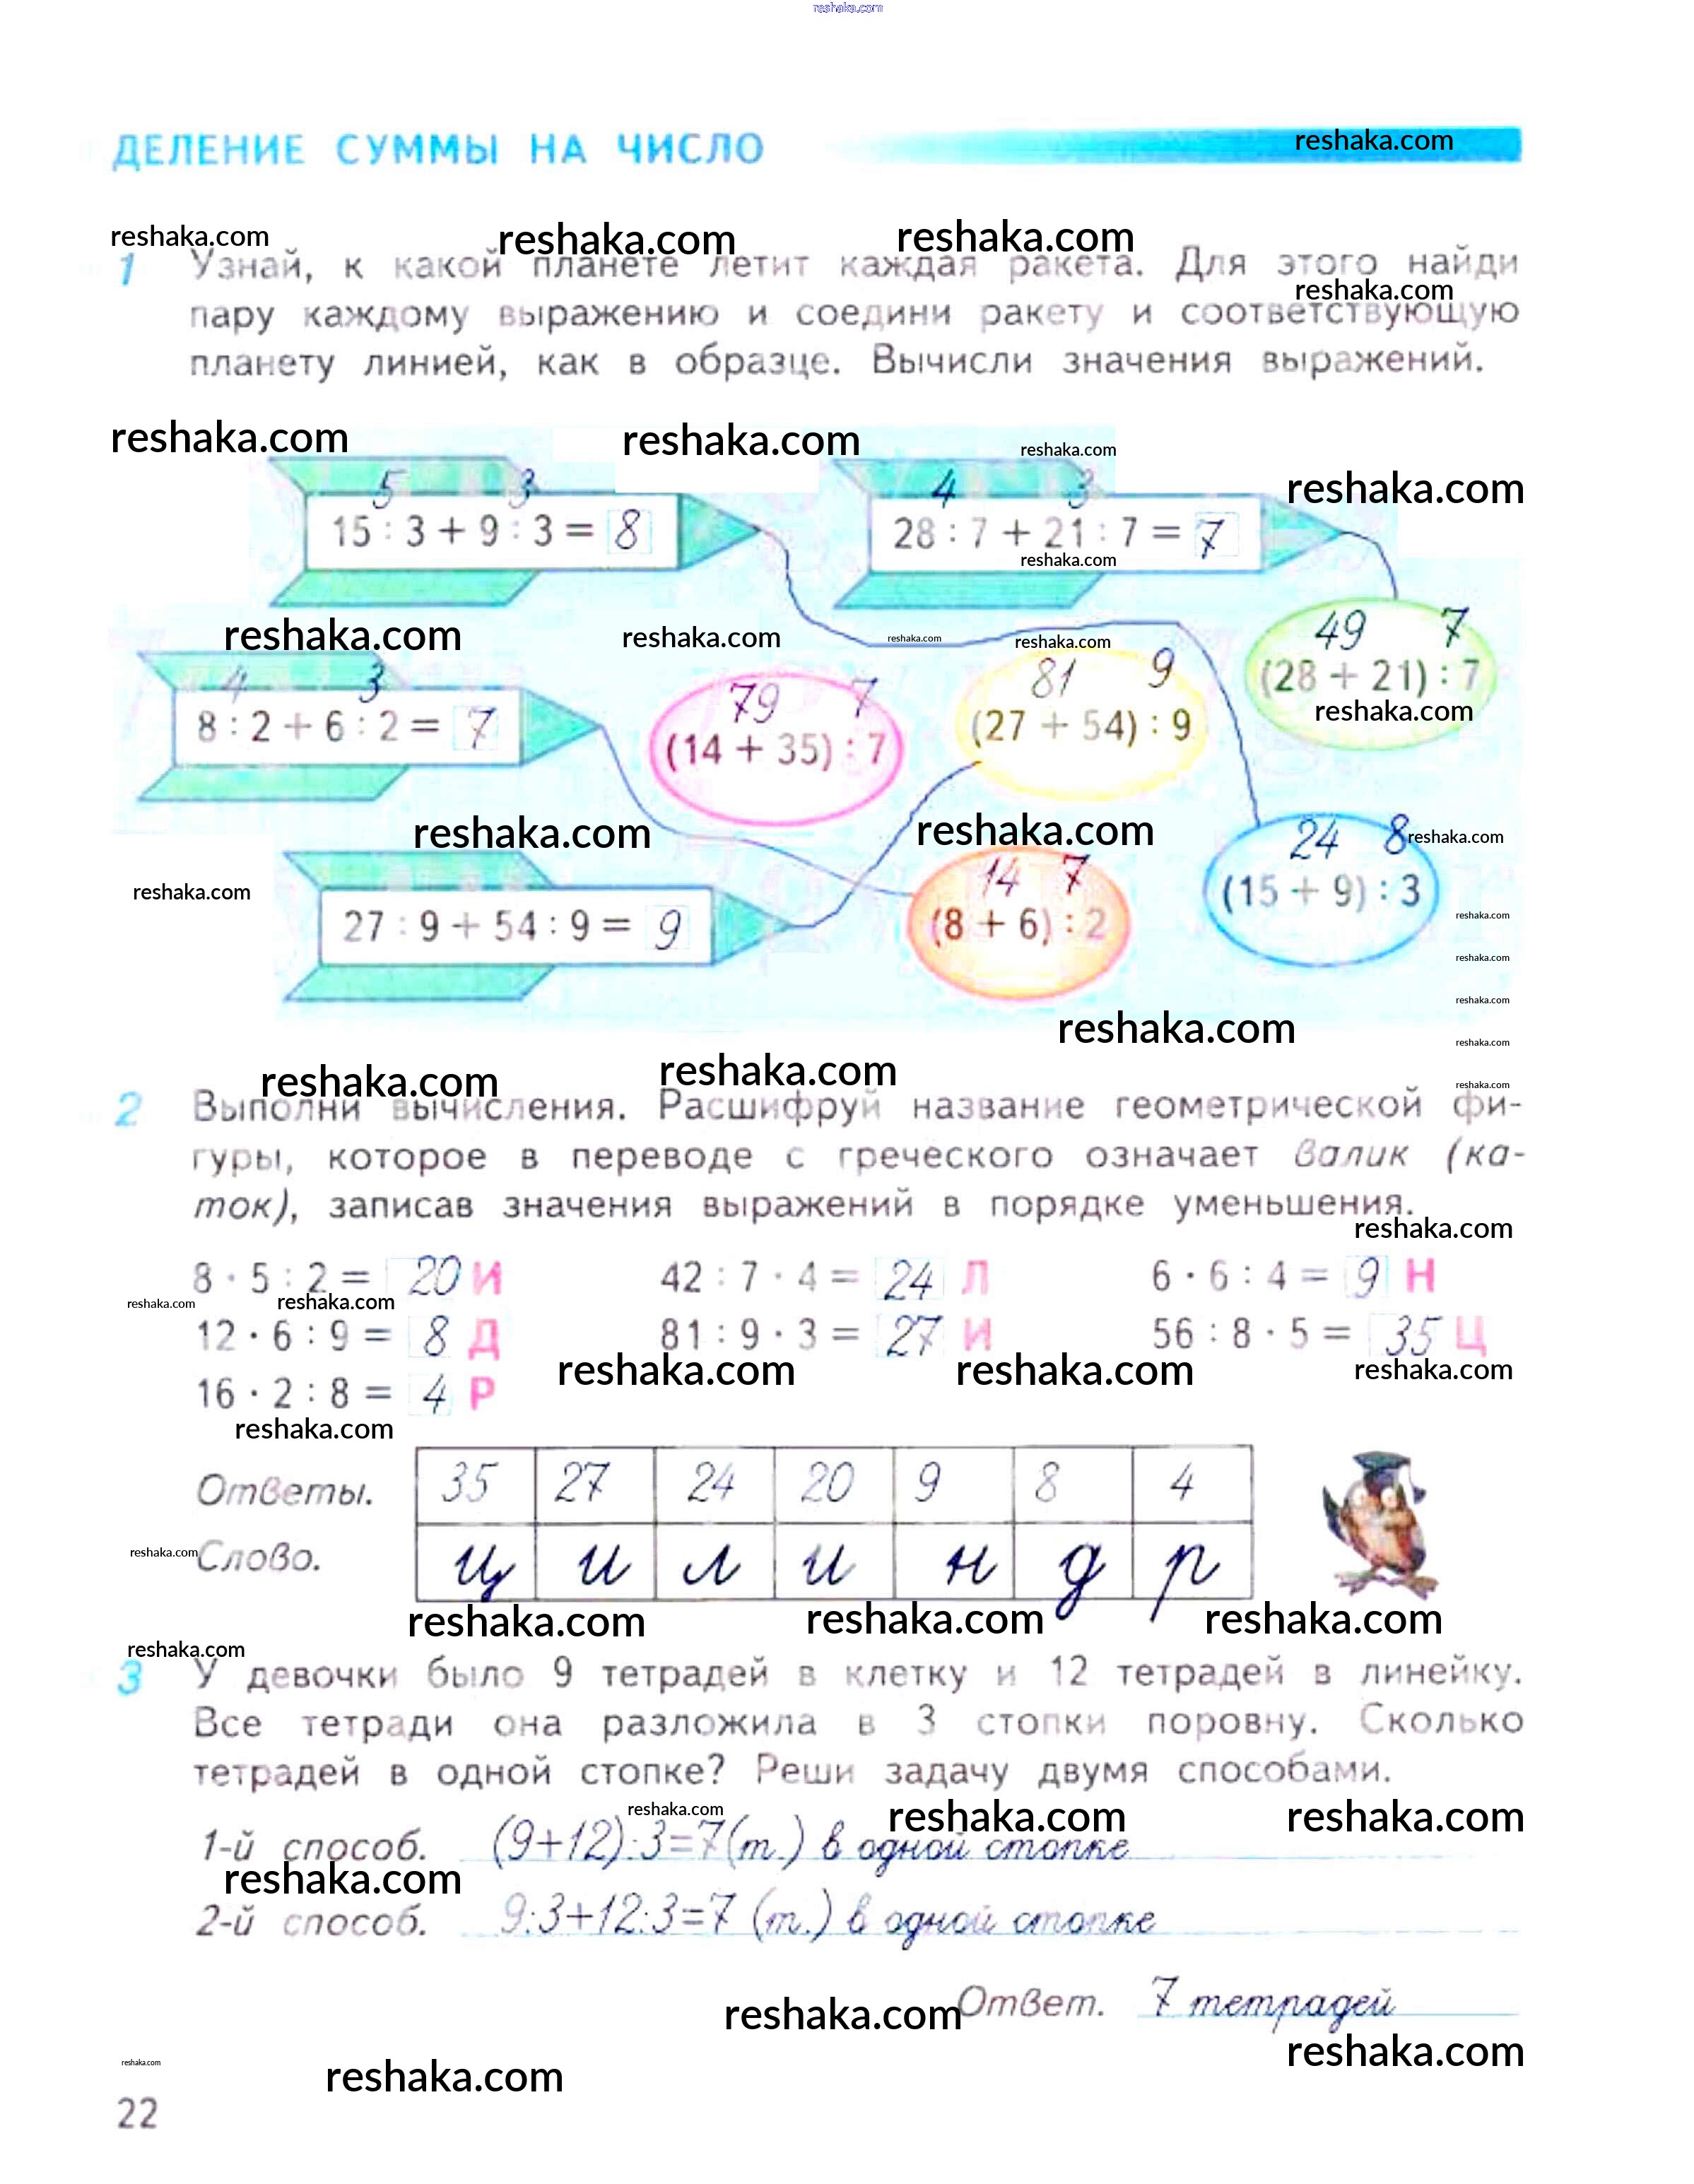 reshaka.com
ДЕЛЕНИЕ СУММЫ НА ЧИСЛО reshaka.com
reshaka.com reshaka.com reshaka.com
1 Узнай, к какой планете летит каждая ракета. Для этого найди
reshaka.com
пару каждому выражению и соедини ракету и соответствующую
планету линией, как в образце. Вычисли значения выражений.
reshaka.com reshaka.com reshaka.com
reshaka.com
5 3 4 3
15 : 3 + 9 : 3 = 8 28 : 7 + 21 : 7 = 7
reshaka.com
reshaka.com reshaka.com reshaka.com reshaka.com 49 7
4 3 79 7 81 9 (28 + 21) : 7
reshaka.com
8 : 2 + 6 : 2 = 7 (14 + 35) : 7 (27 + 54) : 9
reshaka.com reshaka.com 24 8 reshaka.com
reshaka.com 14 7 (15 + 9) : 3
reshaka.com
27 : 9 + 54 : 9 = 9 (8 + 6) : 2
reshaka.com
reshaka.com
reshaka.com
reshaka.com
reshaka.com reshaka.com reshaka.com
2 Выполни вычисления. Расшифруй название геометрической фи-
гуры, которое в переводе с греческого означает валик (ка-
ток), записав значения выражений в порядке уменьшения.
reshaka.com
8 · 5 : 2 = 20 И 42 : 7 · 4 = 24 Л 6 · 6 : 4 = 9 Н
reshaka.com reshaka.com
12 · 6 : 9 = 8 Д 81 : 9 · 3 = 27 И 56 : 8 · 5 = 35 Ц
reshaka.com reshaka.com reshaka.com
16 · 2 : 8 = 4 Р
reshaka.com
Ответы. 35 27 24 20 9 8 4
reshaka.com Слово. ц и л и н д р
reshaka.com reshaka.com reshaka.com
reshaka.com
3 У девочки было 9 тетрадей в клетку и 12 тетрадей в линейку.
Все тетради она разложила в 3 стопки поровну. Сколько
тетрадей в одной стопке? Реши задачу двумя способами.
reshaka.com reshaka.com reshaka.com
1-й способ. (9+12):3=7(т.) в одной стопке
reshaka.com
2-й способ. 9:3+12:3=7 (т.) в одной стопке
reshaka.com Ответ. 7 тетрадей
reshaka.com
reshaka.com reshaka.com
22